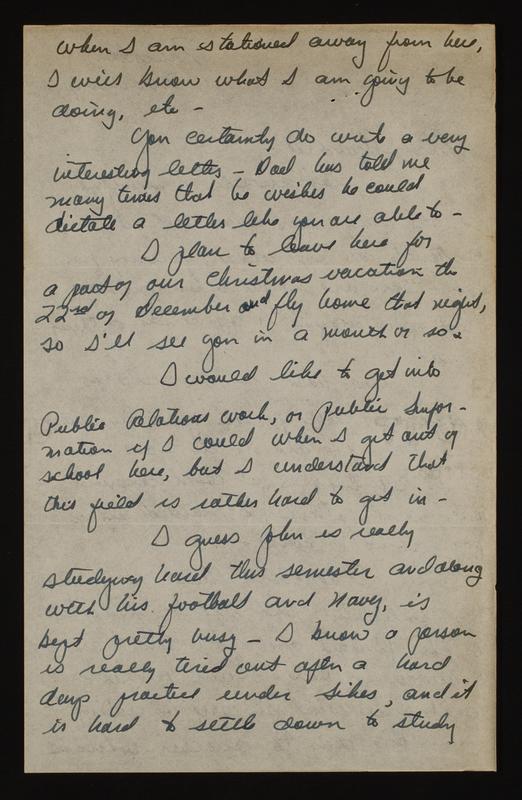 when I am stationed away from here,
I will know what I am going to be
doing, etc -
You certainly do write a very
interesting letter - Dad has told me
many times that he wishes he could
dictate a letter like you are able to -
I plan to leave here for
a part of our Christmas vacation the
22nd of December and fly home that night,
so I'll see you in a month or so.
I would like to get into
Public Relations work, or Public Infor-
mation if I could when I get out of
school here, but I understand that
this field is rather hard to get in -
I guess John is really
studying hard this semester and along
with his football and Navy, is
kept pretty busy - I know a person
is really tired out after a hard
days practice under Sikes, and it
is hard to settle down to study